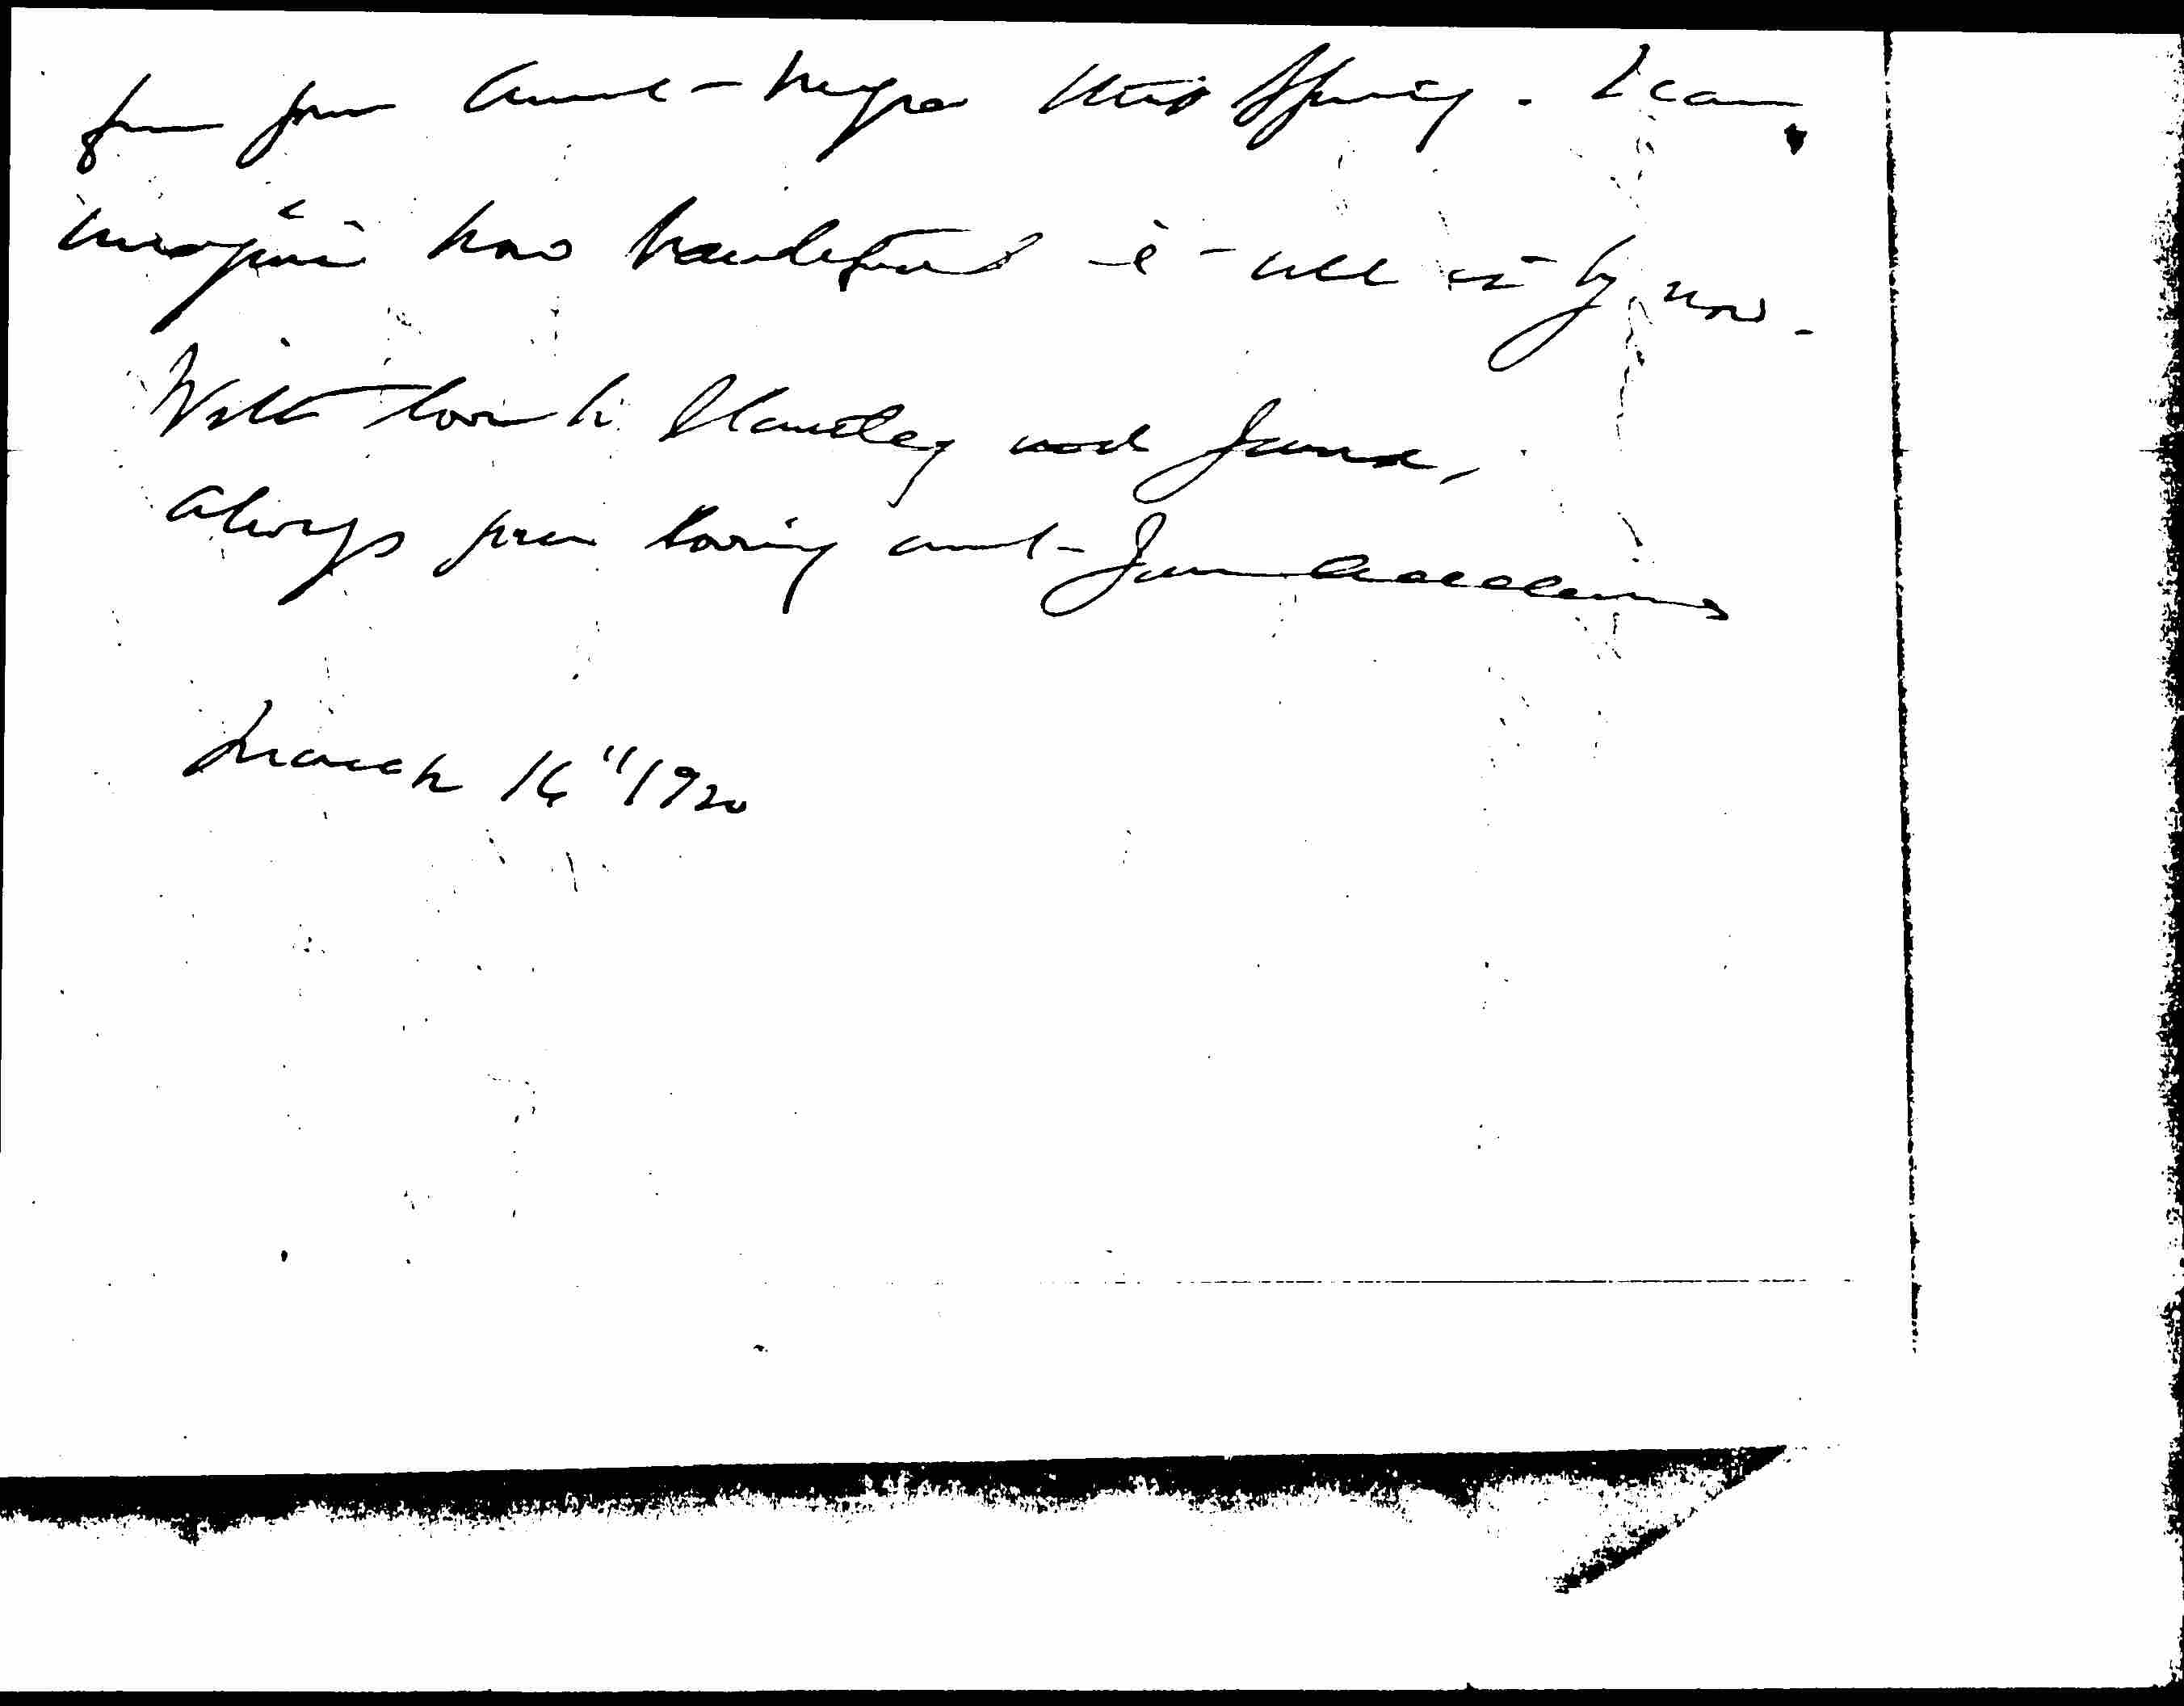 from your Aunt - Myra this Spring. I can
imagine how beautiful it all is by now.
With love to Stanley and Jane,
always your loving aunt - Jane Addams
March 16" 1920